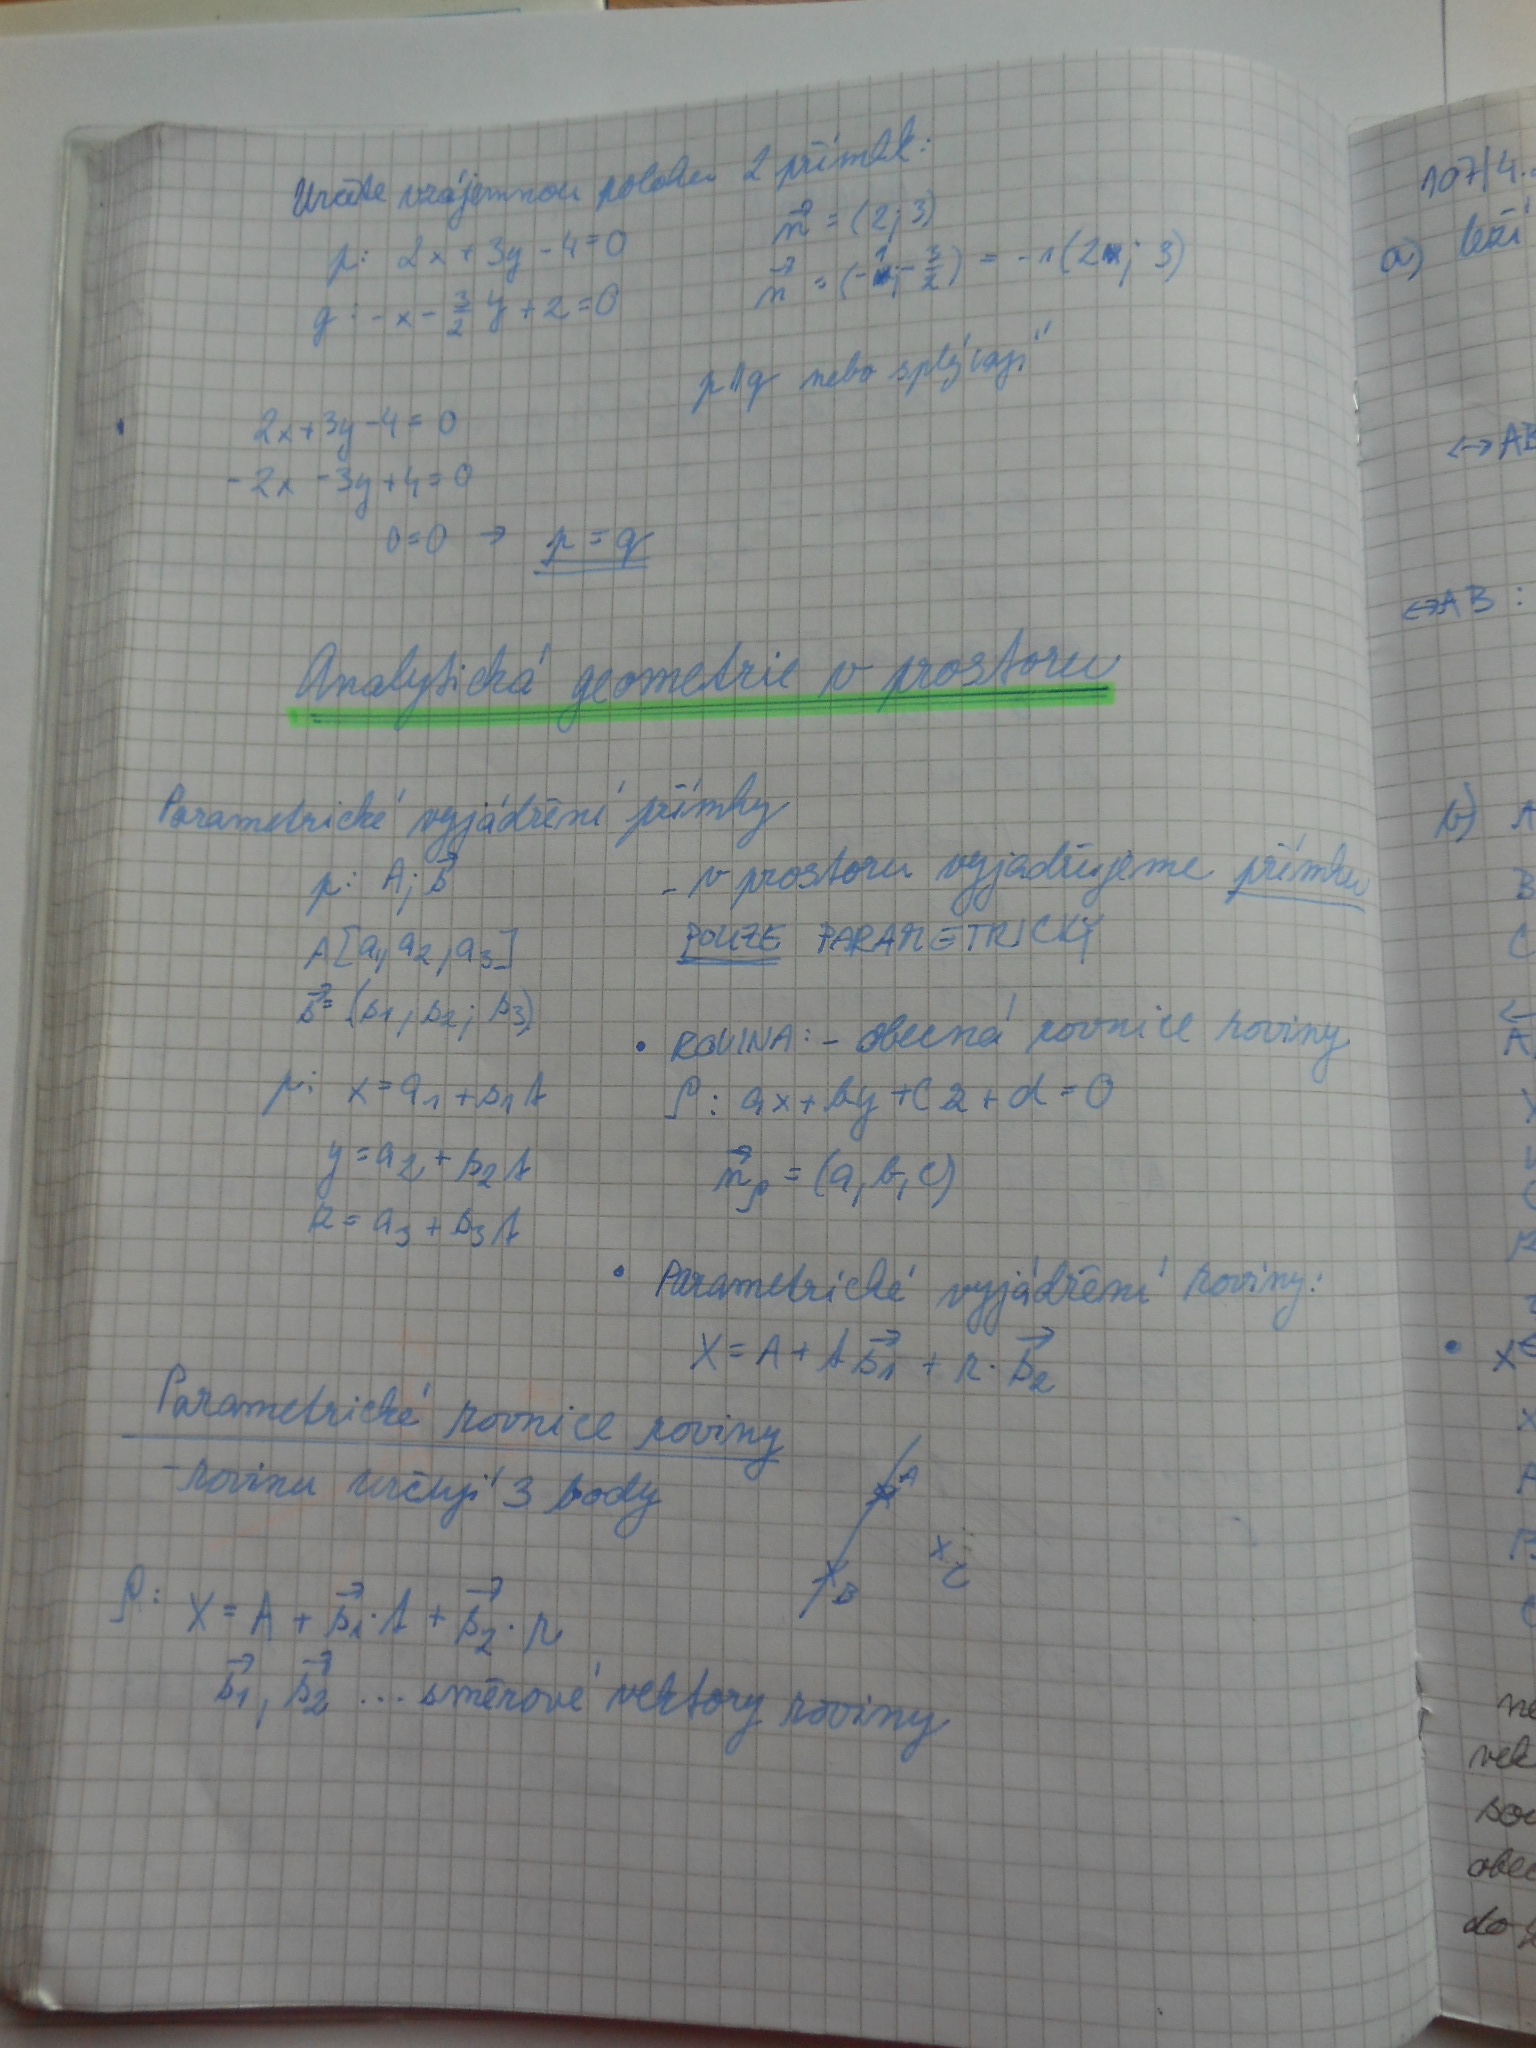 Určete vzájemnou polohu 2 přímek:
p: 2x + 3y - 4 = 0
n⃗ = (2; 3)
q: -x - 3/2 y + 2 = 0
n⃗ = (-1; -3/2) = -1(2; 3)
p ∥ q nebo splývají
2x + 3y - 4 = 0
-2x - 3y + 4 = 0
0 = 0 → p = q
Analytická geometrie v prostoru
Parametrické vyjádření přímky
p: A; s⃗
A[a1, a2, a3]
s⃗ = (s1; s2; s3)
p: x = a1 + s1t
y = a2 + s2t
z = a3 + s3t
- v prostoru vyjadřujeme přímku
POUZE PARAMETRICKY
• ROVINA: - obecná rovnice roviny
ρ: ax + by + cz + d = 0
n⃗ρ = (a, b, c)
• Parametrické vyjádření roviny:
X = A + t s⃗1 + r · s⃗2
Parametrické rovnice roviny
- rovinu určují 3 body
A
B
C
ρ: X = A + s⃗1 · t + s⃗2 · r
s⃗1, s⃗2 ... směrové vektory roviny
107/4.
a) leží
↔AB
↔AB :
b) A
B
C